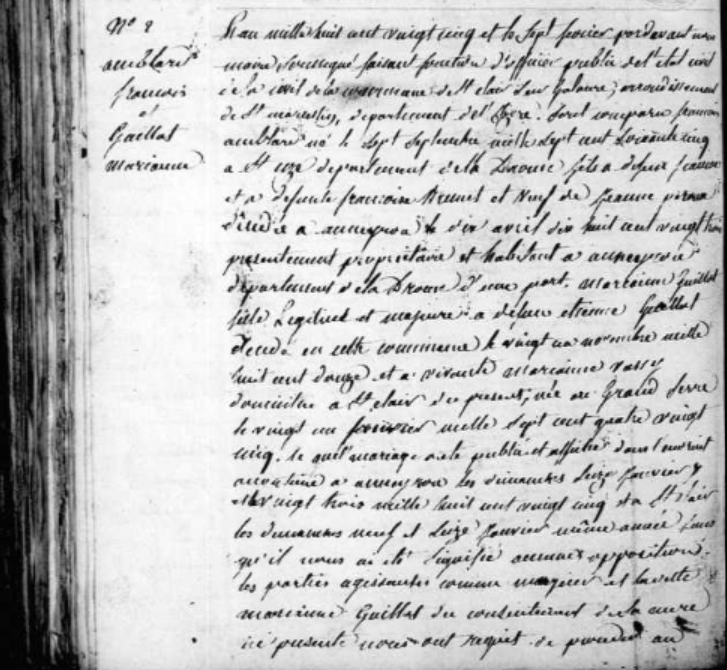 N° 2
amblard
francois
et
Guillat
marianne
L'an mille huit cent vingt cinq et le sept fevrier pardevant nous
maire soussigné faisant fonction d'officier public de l'etat civil
de la civil de la commune de St clair sur Galaure, arrondissement
de St marcellin, departement de l'Isere. sont comparu francois
amblard né le sept septembre mille sept cent soixante cinq
a St uze departement de la Drome fils a defunt francois
et a defunte francoise Brunet et veuf de jeanne
decedée a anneyron le dix avril dix huit cent vingt trois
presentement propriétaire et habitant a anneyron
departement de la Drome d'une part. marianne Guillat
fille Legitime et majeure a defunt etienne Guillat
decedé en cette commune le vingt un novembre mille
huit cent douze et a vivante marianne vassy
domiciliée a St clair du present, née au Grand Serre
le vingt un mille sept cent quatre vingt
cinq. le quel mariage a eté publié et affiché dans l'endroit
a anneyron les dimanches seize janvier &
et vingt trois mille huit cent vingt cinq et a St clair
les dimanches neuf et seize janvier même année sans
qu'il nous ai eté signifié aucune opposition.
les parties agissantes comme majeurs et la dite
marianne Guillat du consentement de sa mere
ici presente nous ont requis de proceder au